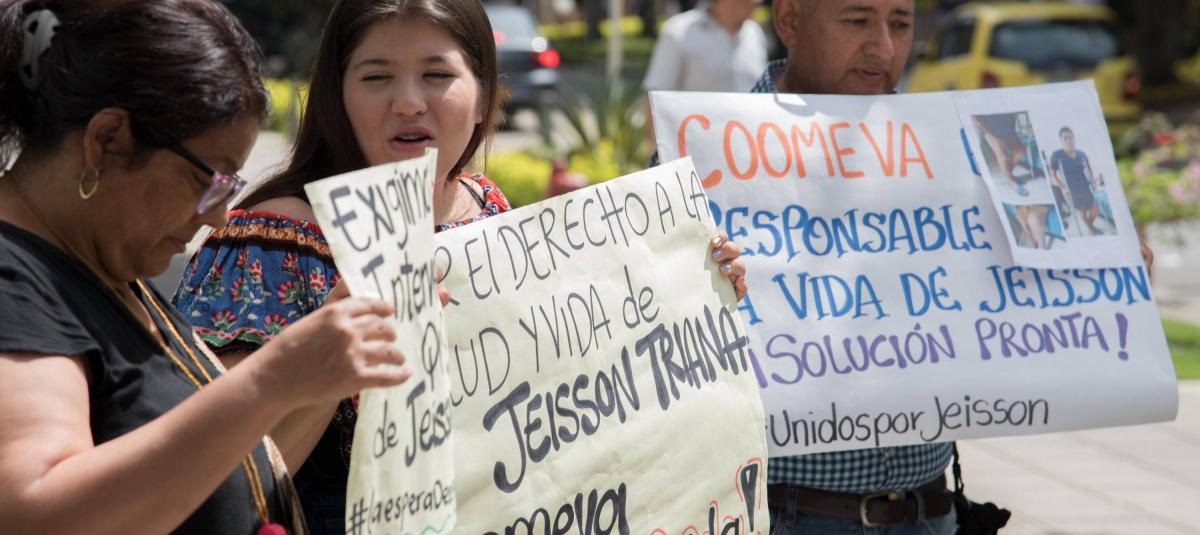 Exigimo
Inten
Q
de Jeiss
#laespera
R El DERECHO A LA
LUD Y VIDA de
JEISSON TRIANA
omeva
da!
COOMEVA
RESPONSABLE
A VIDA DE JEISSON
SOLUCIÓN PRONTA!
#UnidosporJeisson